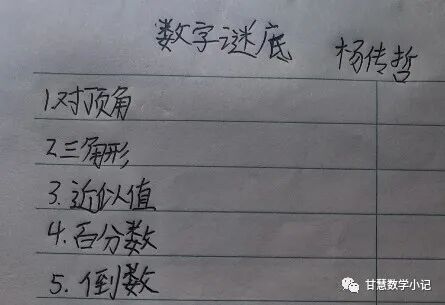 数字谜底 杨传哲
1.对顶角
2.三角形
3.近似值
4.百分数
5.倒数
甘慧数学小记